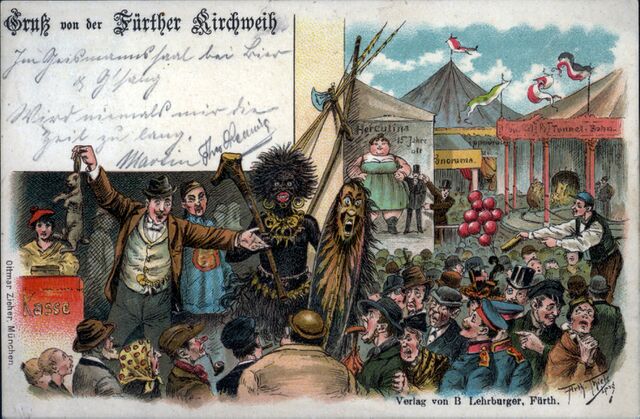 Gruß von der Fürther Kirchweih
Im Geismannssaal bei Bier
& G'sang
Wird niemals mir die
Zeit zu lang.
Martin
Herculina
15 Jahre
alt
Panorama.
Tunnel-Bahn.
Kasse
Ottmar Zieher, München.
Verlag von B Lehrburger, Fürth.